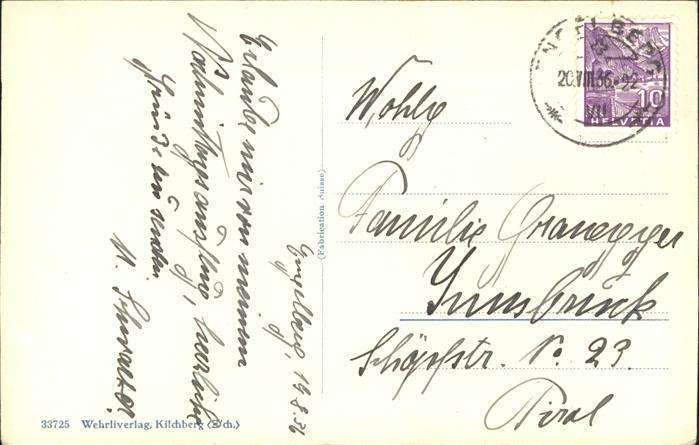 Erlaube mir von meinem
Nachmittagsausflug, herzliche
Grüsse zu senden.
19.8.36
Wohlg
Familie
Innsbruck
Schöpfstr. No. 23.
Tirol
20.VIII.36
10
HELVETIA
(Fabrication Suisse)
33725 Wehrliverlag, Kilchberg (Zch.)